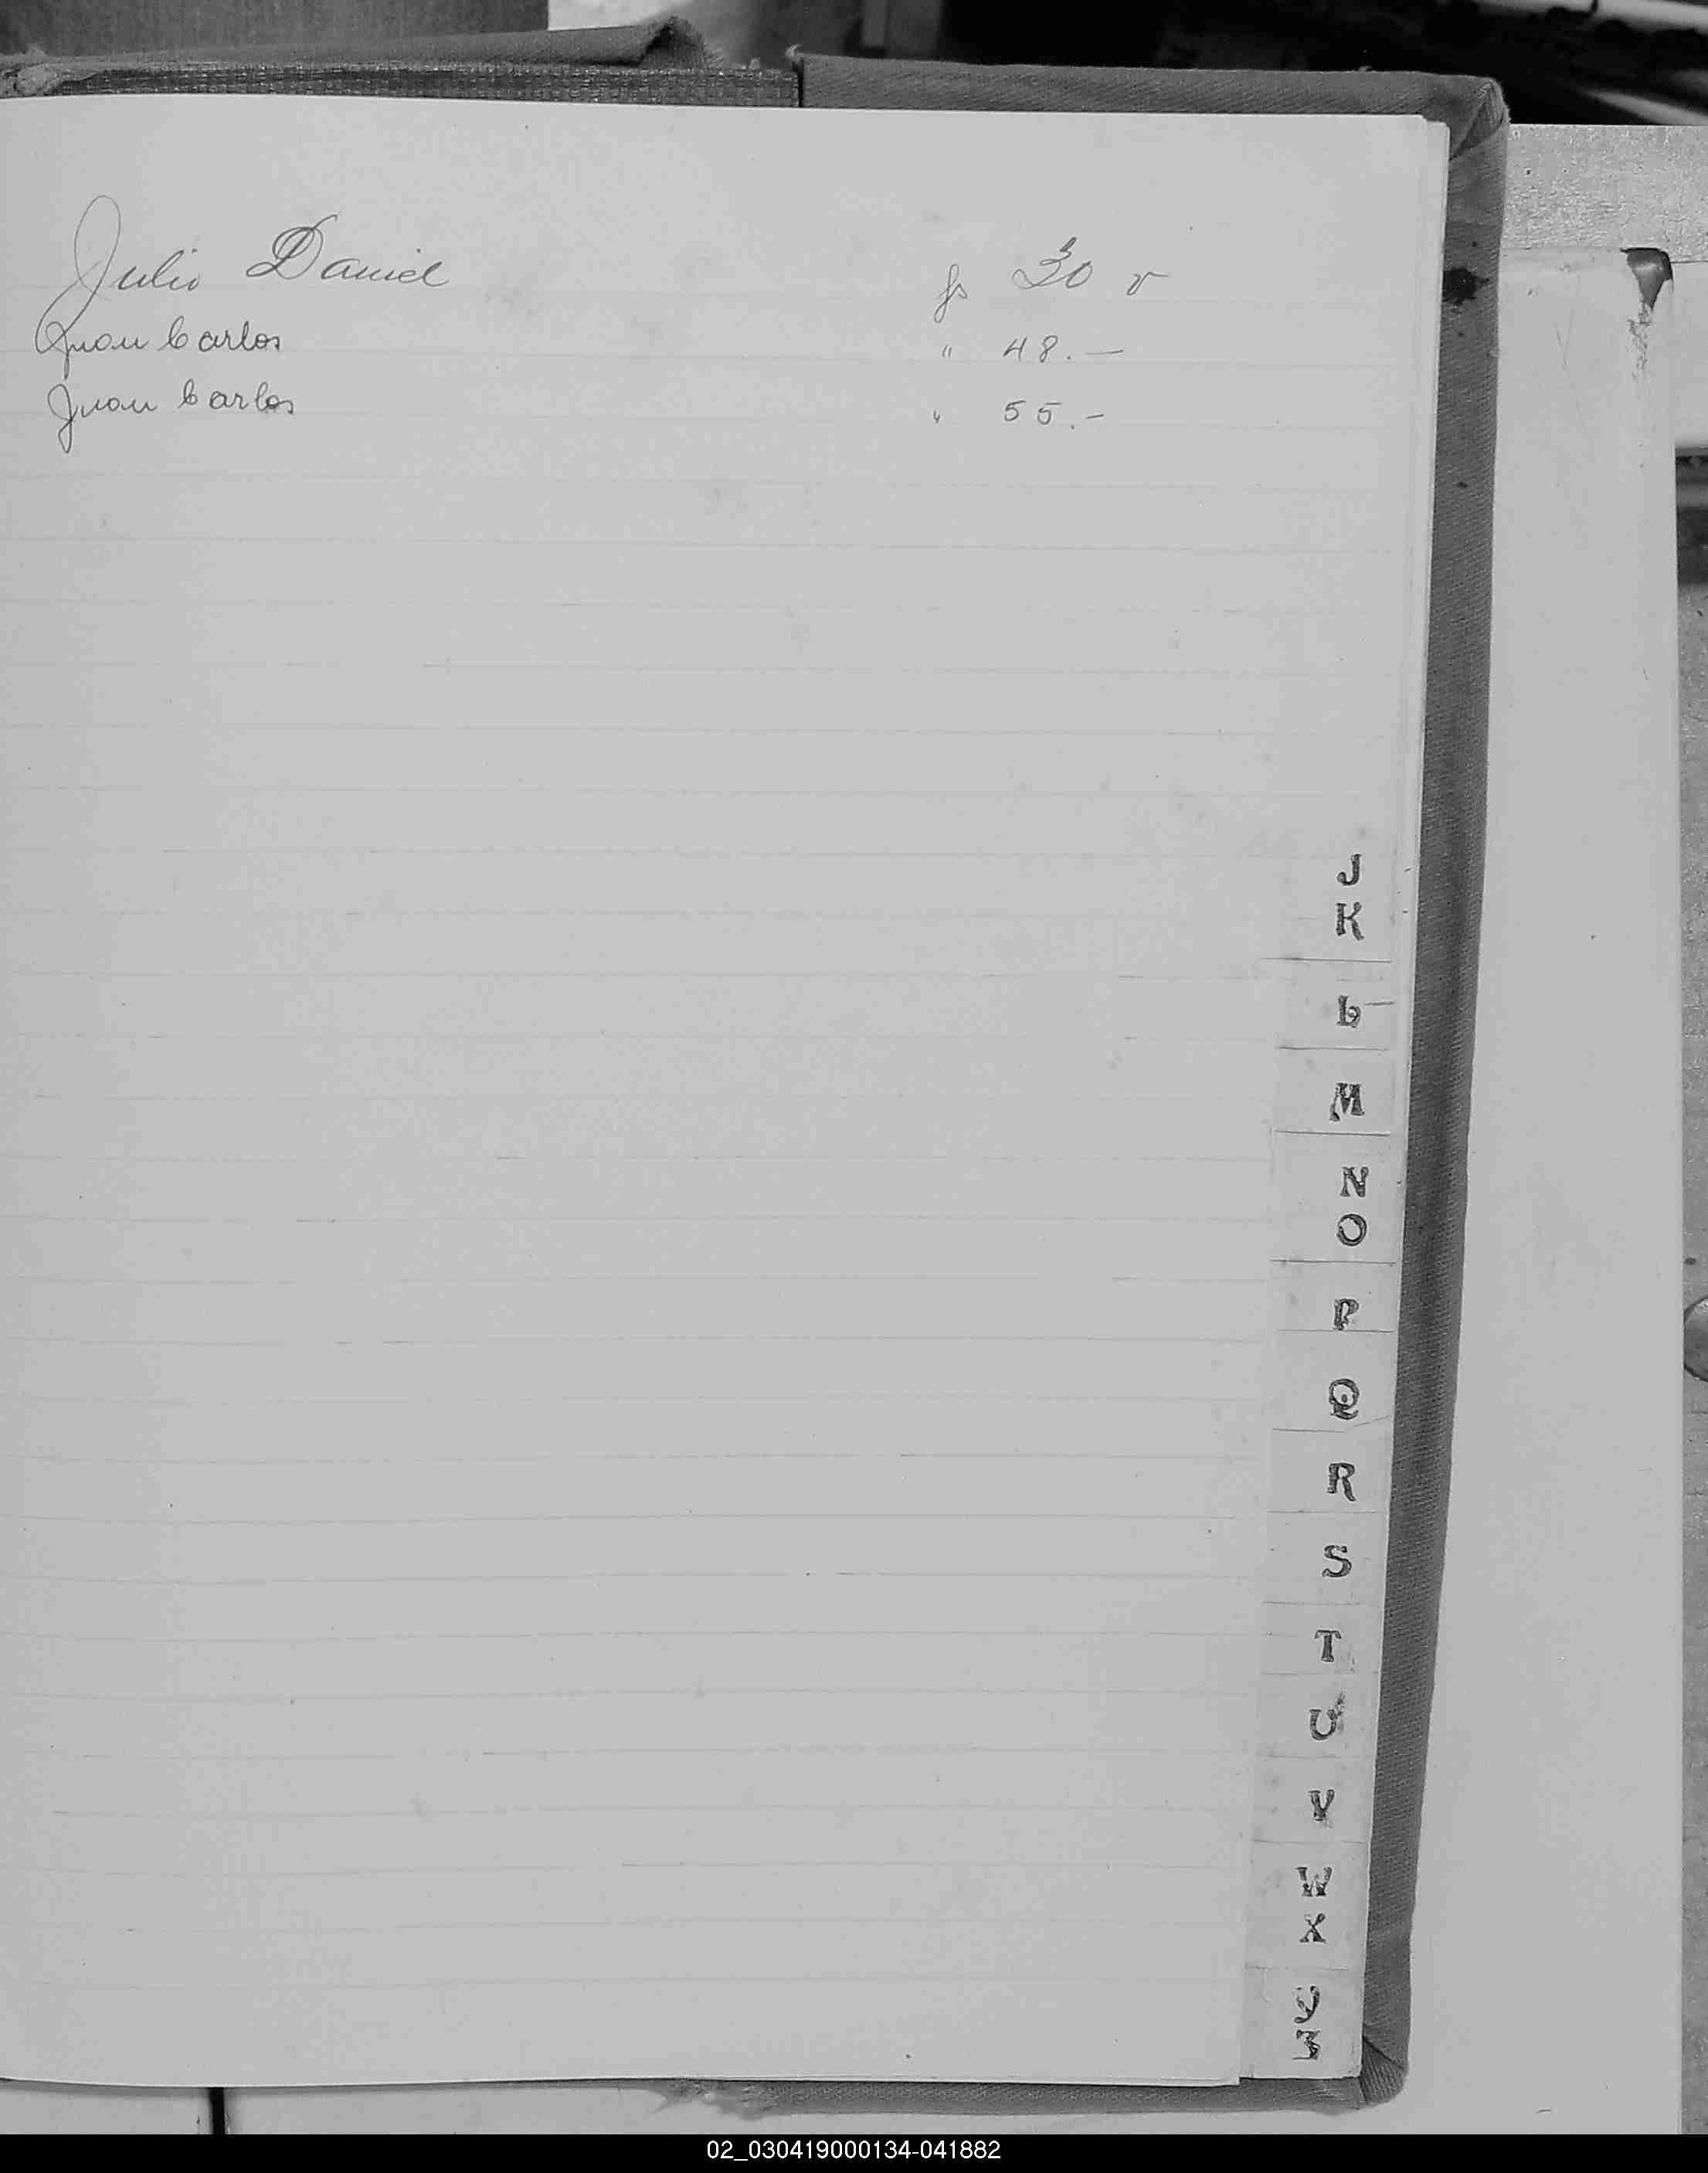 Julio Daniel fs 30 v
Juan Carlos " 48.—
Juan Carlos " 55.-
J
K
L
M
N
O
P
Q
R
S
T
U
V
W
X
Y
Z
02_030419000134-041882